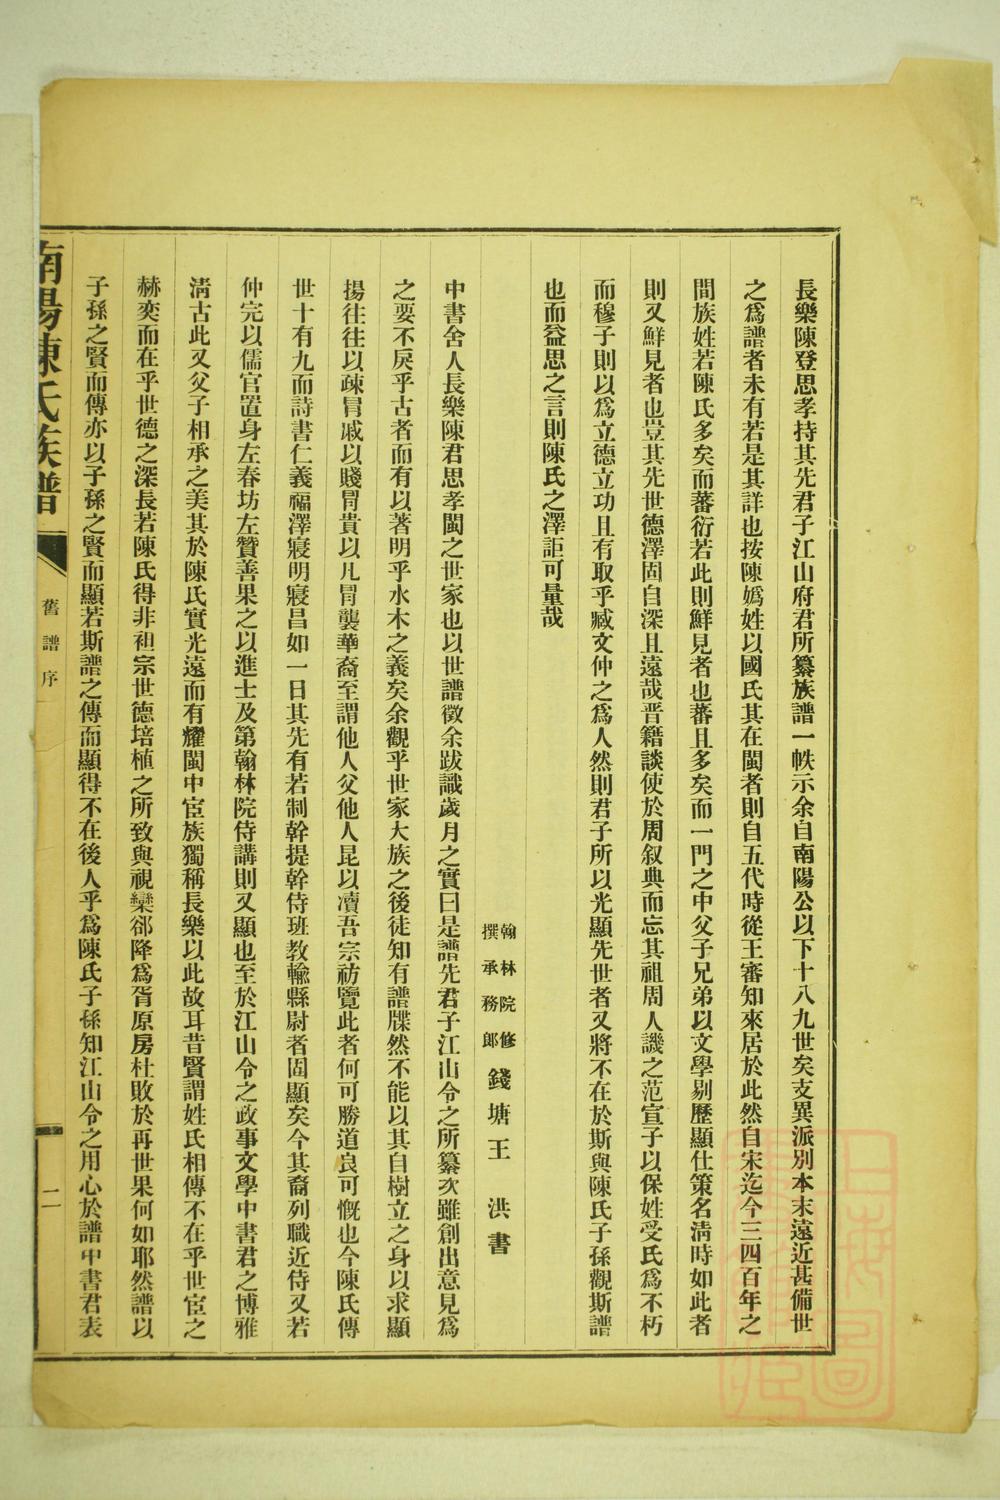 長樂陳登思孝持其先君子江山府君所纂族譜一帙示余自南陽公以下十八九世矣支異派別本末遠近甚備世
之爲譜者未有若是其詳也按陳嬀姓以國氏其在閩者則自五代時從王審知來居於此然自宋迄今三四百年之
間族姓若陳氏多矣而蕃衍若此則鮮見者也蕃且多矣而一門之中父子兄弟以文學剔歷顯仕策名淸時如此者
則又鮮見者也豈其先世德澤固自深且遠哉晋籍談使於周叙典而忘其祖周人譏之范宣子以保姓受氏爲不朽
而穆子則以爲立德立功且有取乎臧文仲之爲人然則君子所以光顯先世者又將不在於斯與陳氏子孫觀斯譜
也而益思之言則陳氏之澤詎可量哉
翰林院修
撰承務郎
錢塘王 洪書
中書舍人長樂陳君思孝閩之世家也以世譜徵余跋識歲月之實曰是譜先君子江山令之所纂次雖創出意見爲
之要不戾乎古者而有以著明乎水木之義矣余觀乎世家大族之後徒知有譜牒然不能以其自樹立之身以求顯
揚往往以疎冐戚以賤冐貴以凡冐襲華裔至謂他人父他人昆以凟吾宗祊覽此者何可勝道良可慨也今陳氏傳
世十有九而詩書仁義福澤寢明寢昌如一日其先有若制幹提幹侍班教輸縣尉者固顯矣今其裔列職近侍又若
仲完以儒官置身左春坊左贊善果之以進士及第翰林院侍講則又顯也至於江山令之政事文學中書君之博雅
淸古此又父子相承之美其於陳氏實光遠而有耀閩中宦族獨稱長樂以此故耳昔賢謂姓氏相傳不在乎世宦之
赫奕而在乎世德之深長若陳氏得非祖宗世德培植之所致與視欒郤降爲胥原房杜敗於再世果何如耶然譜以
子孫之賢而傳亦以子孫之賢而顯若斯譜之傳而顯得不在後人乎爲陳氏子孫知江山令之用心於譜中書君表
南陽陳氏族譜
舊譜序
二